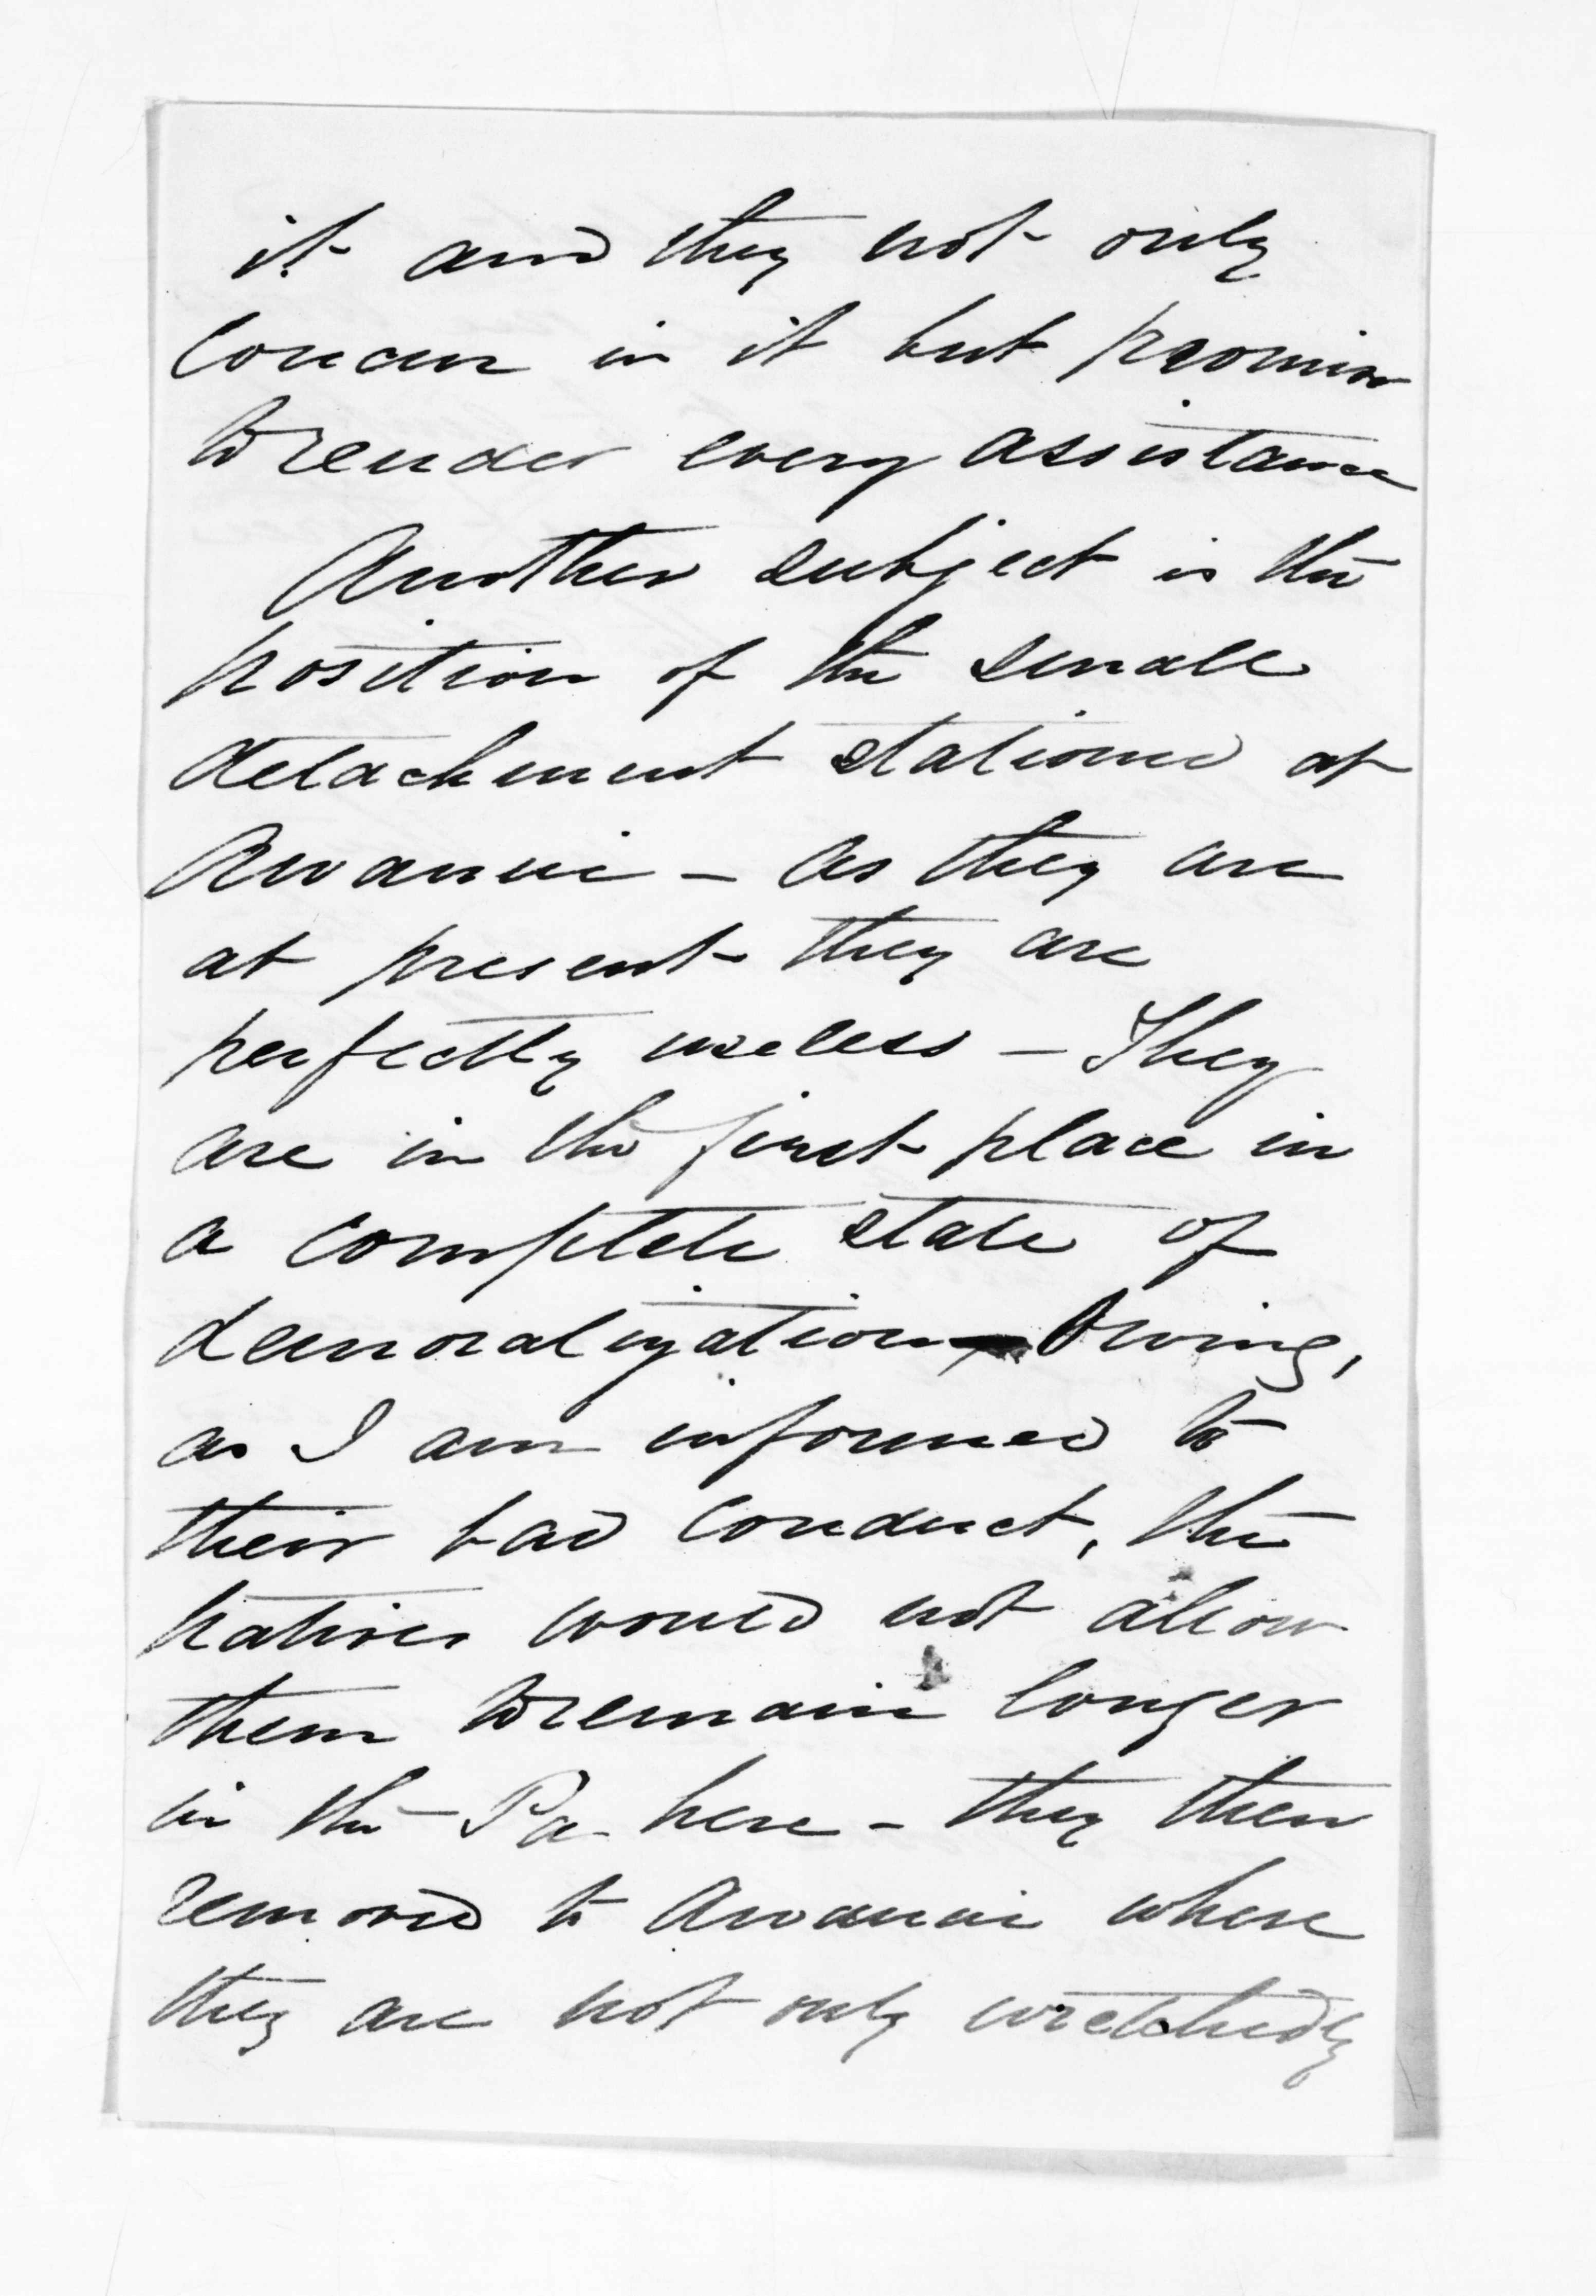 it and they not only
concur in it but promise
to render every assistance
Another subject is the
position of the small
detachment stationed at
Awanui - as they are
at present they are
perfectly useless - They
are in the first place in
a complete state of
demoralization - Owing,
as I am informed to
their bad conduct, the
natives would not allow
them to remain longer
in the Pa here - they then
removed to Awanui where
they are not only wretchedly